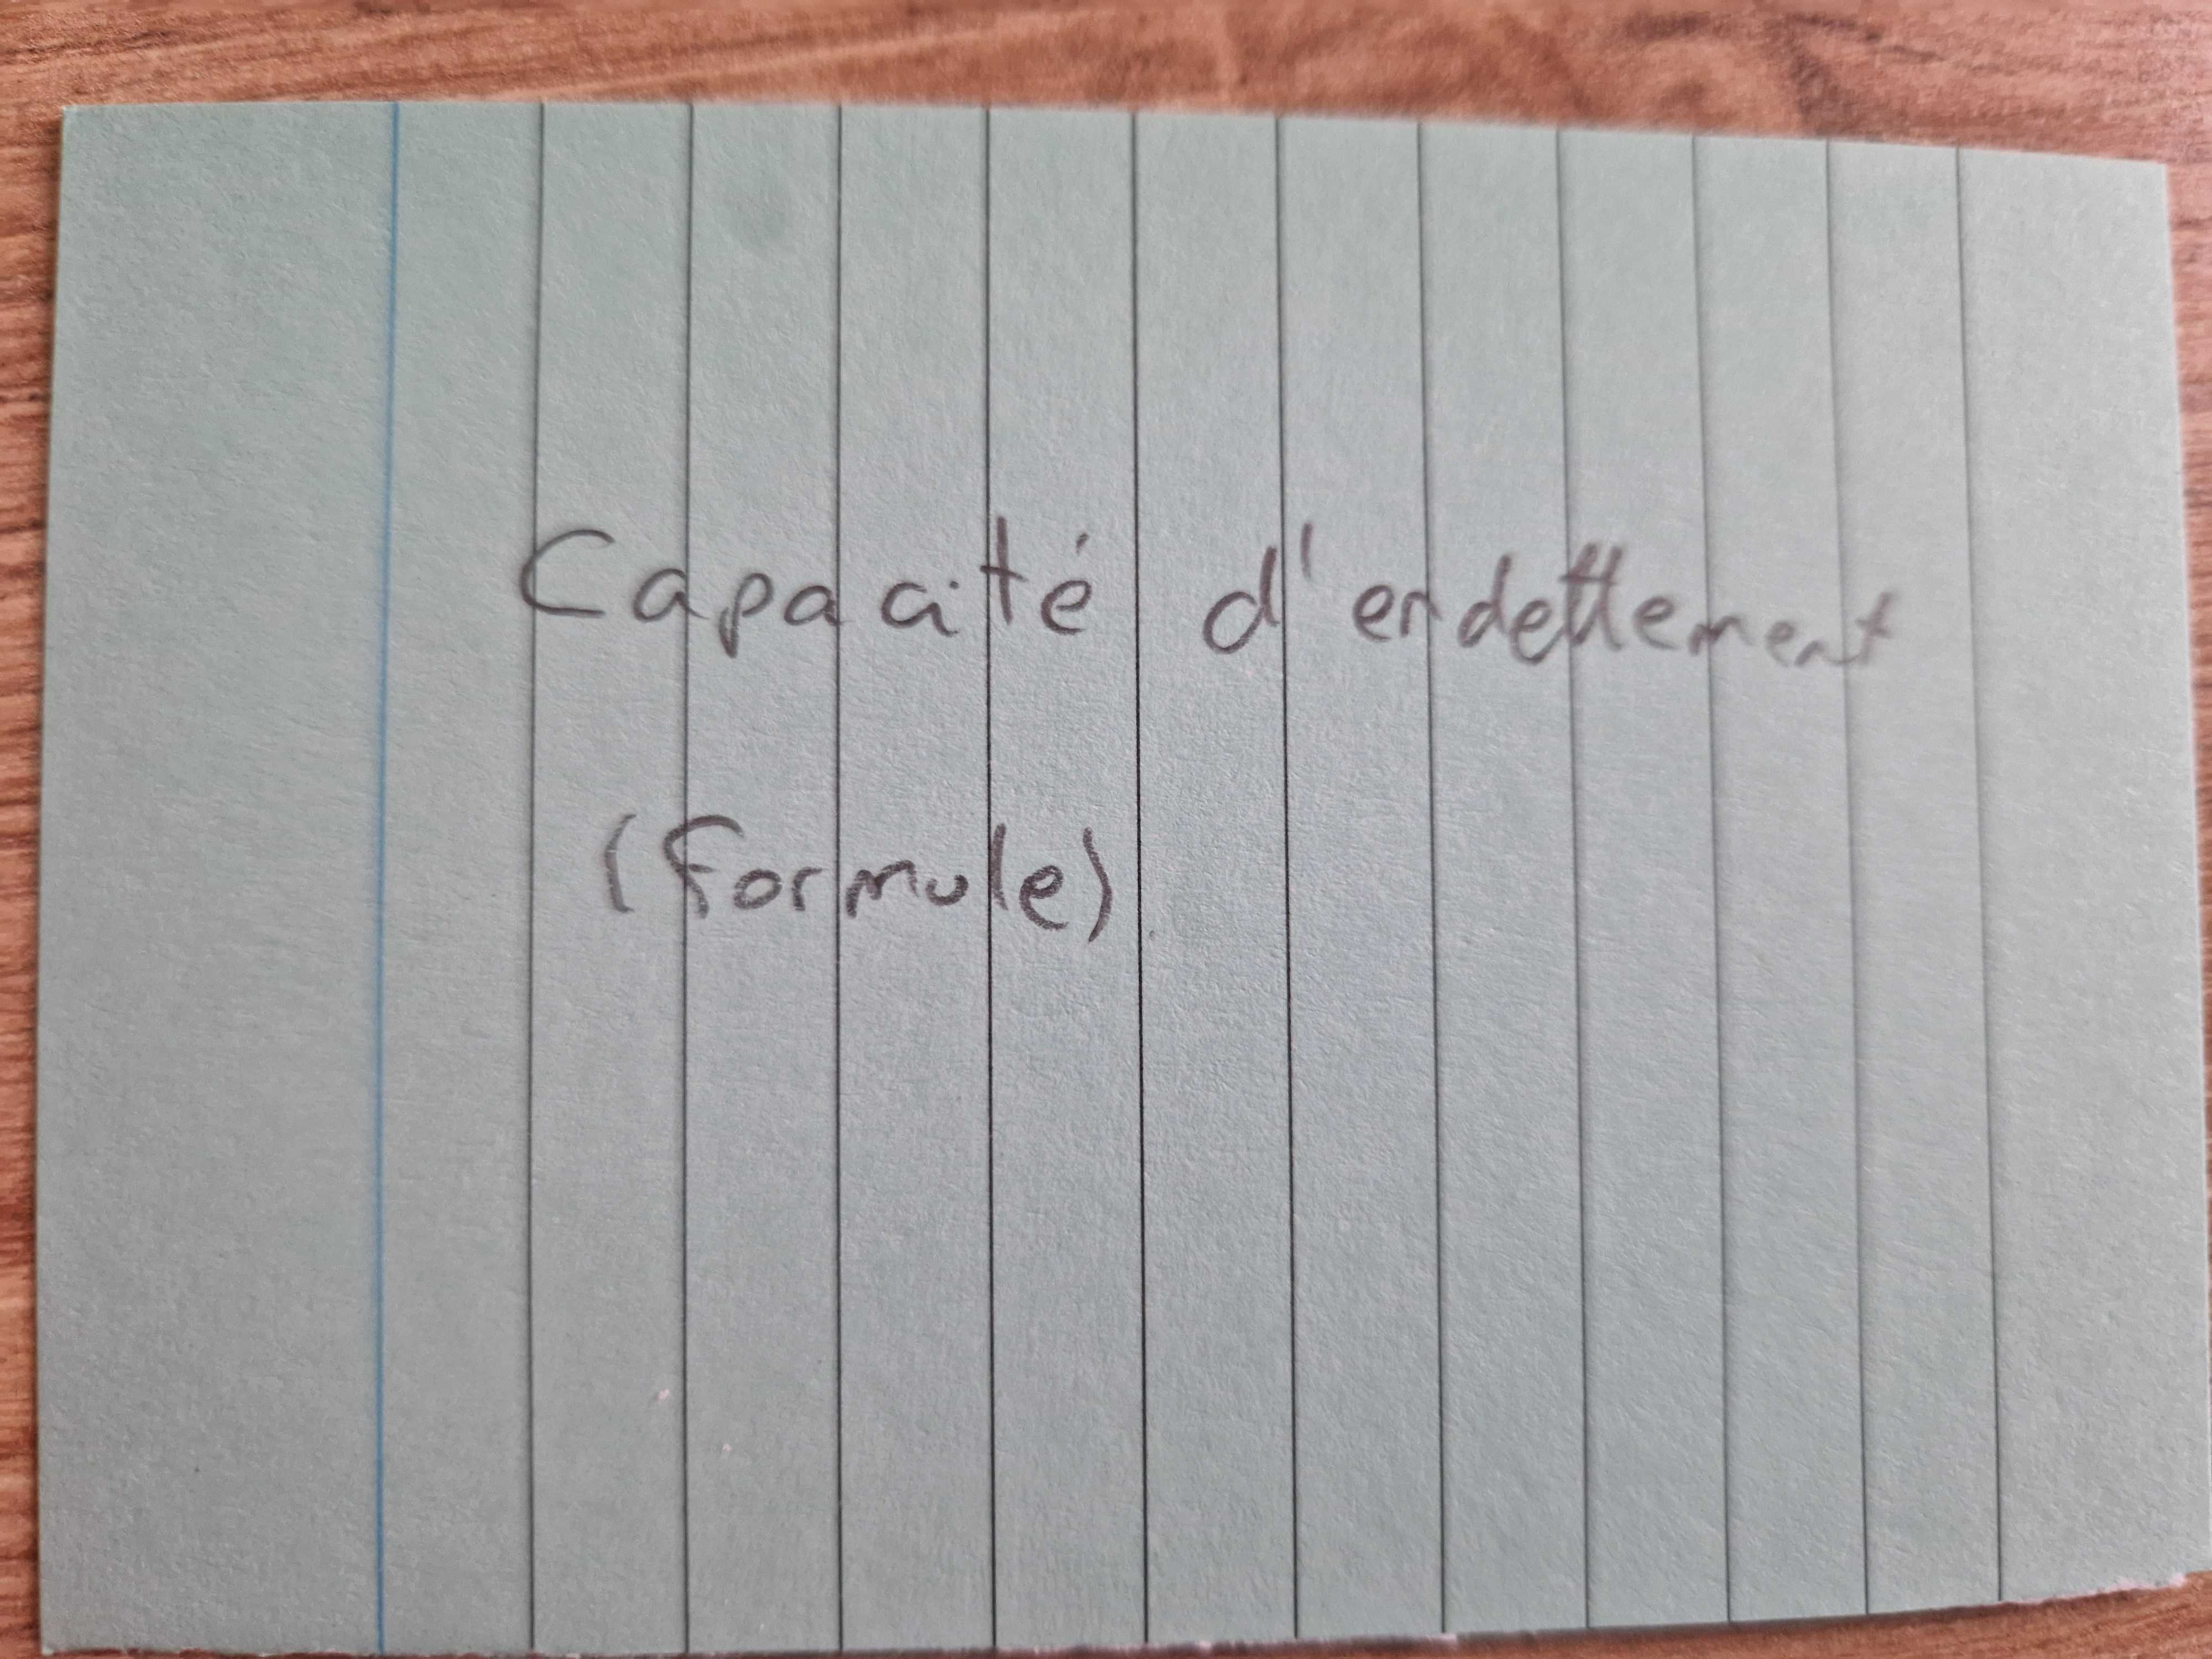 Capacité d'endettement
(formule)